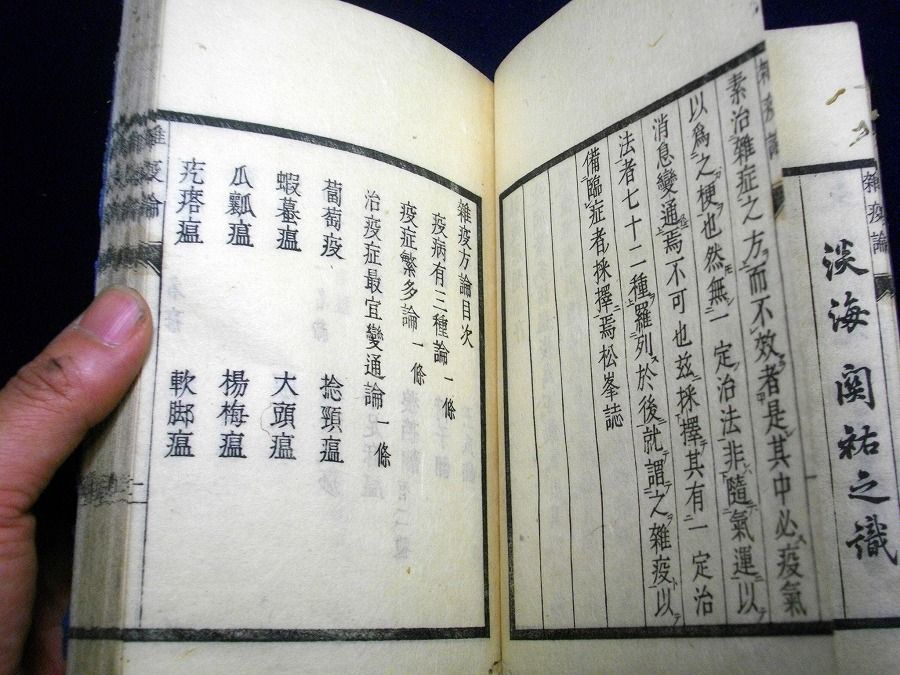 淡海 関祐之識
雜疫論
素治雜症之方而不效者是其中必疫氣
以爲之梗也然無一定治法非隨氣運以
消息變通焉不可也茲採擇其有一定治
法者七十二種羅列於後就謂之雜疫以
備臨症者採擇焉松峯誌
雜疫方論目次
疫病有三種論一條
疫症繁多論一條
治疫症最宜變通論一條
葡萄疫 捻頸瘟
蝦蟇瘟 大頭瘟
瓜瓤瘟 楊梅瘟
疙瘩瘟 軟脚瘟
雜疫論